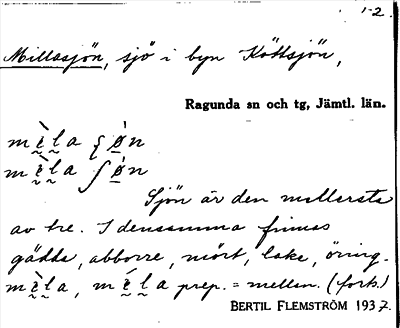 1-2.
Millasjön, sjö i byn Köttsjön,
Ragunda sn och tg, Jämtl. län.
mḛ̀l̰a ʃø̀n
mḛ̀l̰a ʃø̀n
Sjön är den mellersta
av tre. I densamma finnas
gädda, abborre, mört, lake, öring.
mḛ̀l̰a, mḛ́l̰a prep. = mellan. (forts.)
BERTIL FLEMSTRÖM 1937.